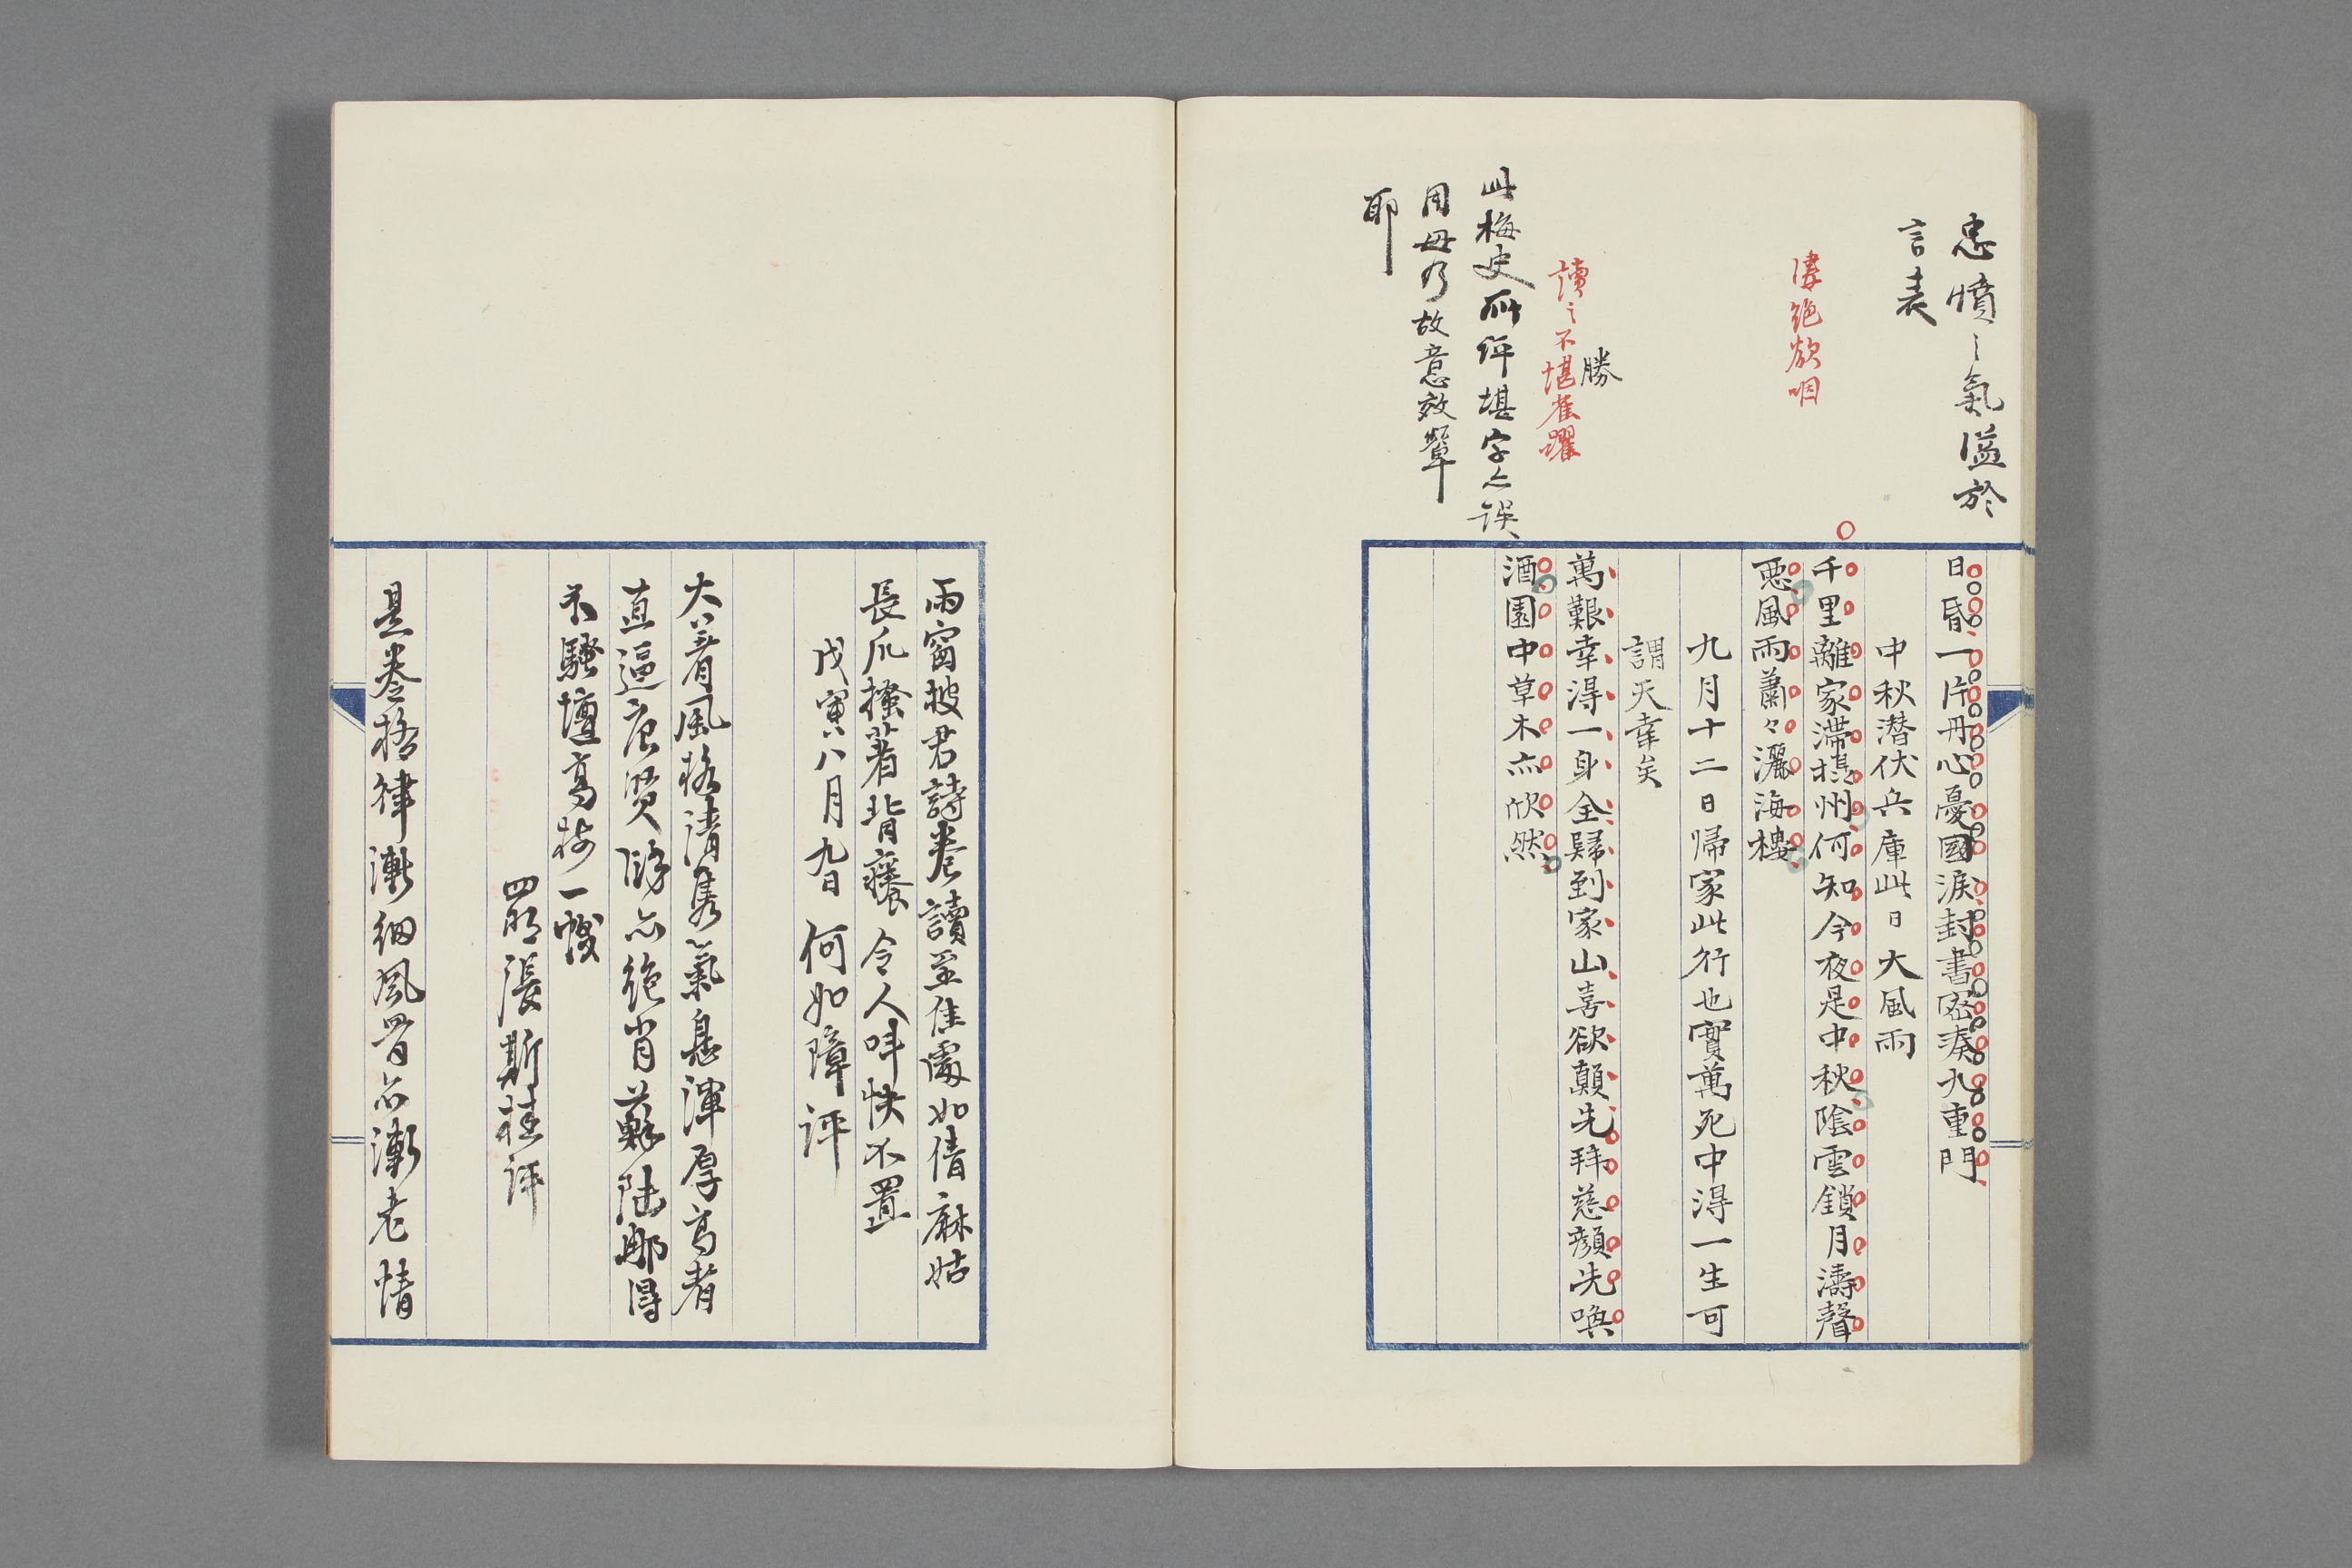 忠憤之氣溢於
言表
凄絶欲咽
勝
讀之不堪雀躍
此梅史所評堪字之誤
用毋乃故意效顰
耶
日昏一片丹心憂國淚封書密奏九重門
中秋潜伏兵庫此日大風雨
千里離家滯攝州何知今夜是中秋陰雲鎖月濤聲
悪風雨蕭々灑海樓
九月十二日帰家此行也實萬死中得一生可
謂天幸矣
萬艱幸得一身全歸到家山喜欲顛先拜慈顔先喚
酒園中草木亦欣然
雨窗披君詩卷讀至佳處如倩麻姑
長爪搔著背癢令人呌快不置
戊寅八月九日何如璋評
大著風格清雋氣息渾厚高者
直逼唐賢降亦絶肖蘇陸那得
不騷壇高樹一幟
四明張斯桂評
是卷格律漸細風骨亦漸老情